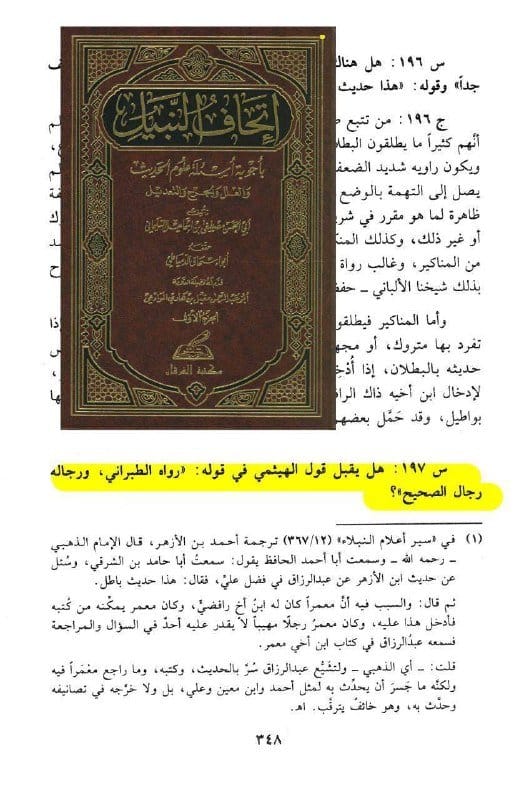 س ١٩٦: هل هناك
جداً» وقوله: «هذا حديث
ج ١٩٦: من تتبع
أنّهم كثيراً ما يطلقون
ويكون راويه شديد الضعف
يصل إلى التهمة بالوضع
ظاهرة لما هو مقرر في
أو غير ذلك، وكذلك
من المناكير، وغالب رواة
بذلك شيخنا الألباني ـ
وأما المناكير فيطلقو
تفرد بها متروك، أو
حديثه بالبطلان، إذا
لإدخال ابن أخيه ذاك
بواطيل، وقد حَمَّل بعضهم
إتحاف النبيل
بأجوبة أسئلة علوم الحديث
والعلل والجرح والتعديل
الجزء الأول
مكتبة الفرقان
س ١٩٧: هل يقبل قول الهيثمي في قوله: «رواه الطبراني، ورجاله
رجال الصحيح»؟
(١) في «سير أعلام النبلاء» (٣٦٧/١٢) ترجمة أحمد بن الأزهر، قال الإمام الذهبي
ـ رحمه الله ـ وسمعت أبا أحمد الحافظ يقول: سمعتُ أبا حامد بن الشرقي، وسُئل
عن حديث ابن الأزهر عن عبدالرزاق في فضل عليّ، فقال: هذا حديث باطل.
ثم قال: والسبب فيه أنَّ معمراً كان له ابنُ أخ رافضيٌّ، وكان معمر يمكّنه من كُتبه
فأدخل هذا عليه، وكان معمرُ رجلًا مهيباً لا يقدر عليه أحدٌ في السؤال والمراجعة
فسمعه عبدُالرزاق في كتاب ابن أخي معمر.
قلت: ـ أي الذهبي ـ ولتشيُّع عبدالرزاق سُرَّ بالحديث، وكتبه، وما راجع معْمَراً فيه
ولكنَّه ما جَسرَ أن يحدِّث به لمثل أحمد وابن معين وعلي، بل ولا خرَّجه في تصانيفه
وحدَّث به، وهو خائفٌ يترقَّب. اهـ
٣٤٨